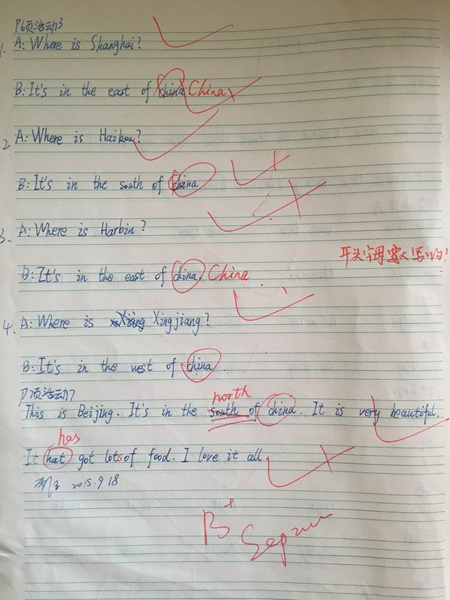 P6页活动3
1. A: Where is Shanghai?
B: It's in the east of china China
2. A: Where is Haikou?
B: It's in the south of china
3. A: Where is Harbin?
开头字母要大写的!
B: It's in the east of china. China
4. A: Where is Xingjiang?
B: It's in the west of china.
P7页活动7
north
This is Beijing. It's in the south of china. It is very beautiful.
has
It hat got lots of food. I love it all
2015.9.18
B+